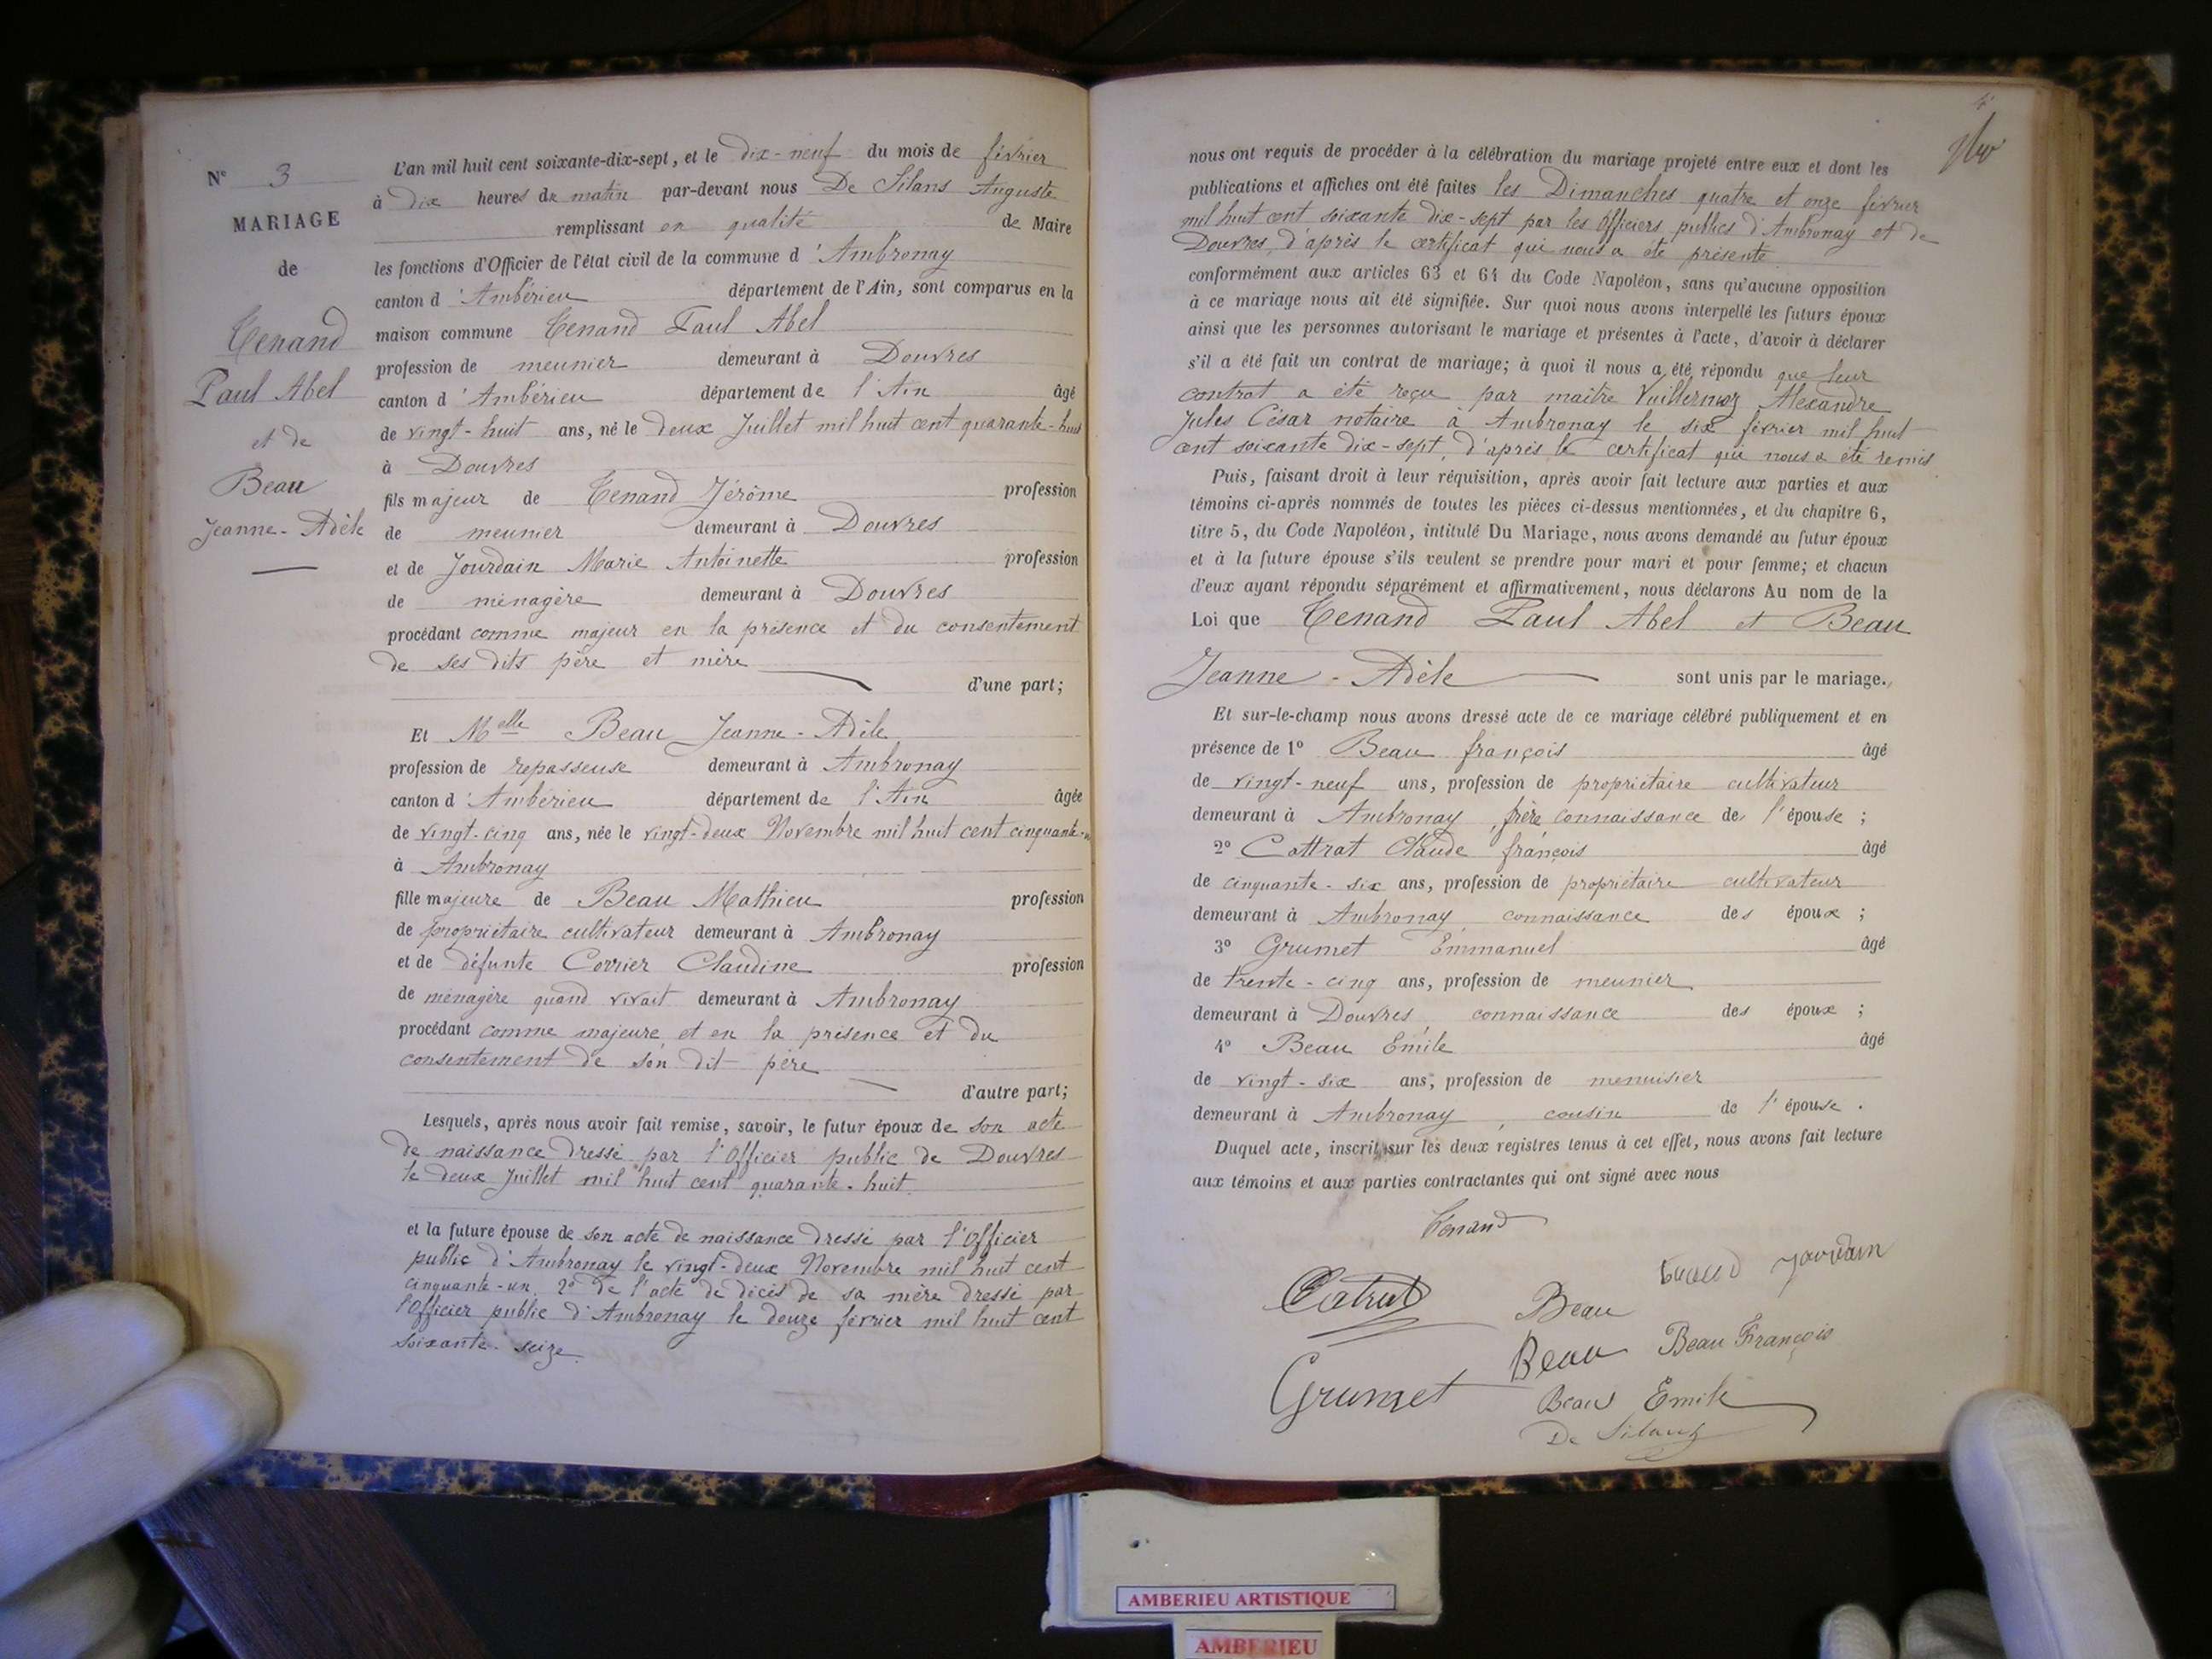 N° 3
MARIAGE
de
Tenand
Paul Abel
et de
Beau
Jeanne-Adèle
L'an mil huit cent soixante-dix-sept, et le dix-neuf du mois de février
à dix heures du matin par-devant nous De Silans Auguste
remplissant en qualité de Maire
les fonctions d'Officier de l'état civil de la commune d'Ambronay
canton d'Ambérieu département de l'Ain, sont comparus en la
maison commune Tenand Paul Abel
profession de meunier demeurant à Douvres
canton d'Ambérieu département de l'Ain âgé
de vingt-huit ans, né le deux Juillet mil huit cent quarante-huit
à Douvres
fils majeur de Tenand Jérôme profession
de meunier demeurant à Douvres
et de Jourdain Marie Antoinette profession
de ménagère demeurant à Douvres
procédant comme majeur en la présence et du consentement
de ses dits père et mère
d'une part;
Et Melle Beau Jeanne-Adèle
profession de repasseuse demeurant à Ambronay
canton d'Ambérieu département de l'Ain âgée
de vingt-cinq ans, née le vingt-deux Novembre mil huit cent cinquante-un
à Ambronay
fille majeure de Beau Mathieu profession
de propriétaire cultivateur demeurant à Ambronay
et de défunte Corrier Claudine profession
de ménagère quand vivait demeurant à Ambronay
procédant comme majeure et en la présence et du
consentement de son dit père
d'autre part;
Lesquels, après nous avoir fait remise, savoir, le futur époux de son acte
de naissance dressé par l'Officier public de Douvres
le deux Juillet mil huit cent quarante-huit.
et la future épouse de son acte de naissance dressé par l'Officier
public d'Ambronay le vingt-deux Novembre mil huit cent
cinquante-un. 2° de l'acte de décès de sa mère dressé par
l'Officier public d'Ambronay le douze février mil huit cent
soixante-seize.
nous ont requis de procéder à la célébration du mariage projeté entre eux et dont les
publications et affiches ont été faites les Dimanches quatre et onze février
mil huit cent soixante dix-sept par les Officiers publics d'Ambronay et de
Douvres, d'après le certificat qui nous a été présenté
conformément aux articles 63 et 64 du Code Napoléon, sans qu'aucune opposition
à ce mariage nous ait été signifiée. Sur quoi nous avons interpellé les futurs époux
ainsi que les personnes autorisant le mariage et présentes à l'acte, d'avoir à déclarer
s'il a été fait un contrat de mariage; à quoi il nous a été répondu que leur
contrat a été reçu par maître Vuillermoz Alexandre
Jules César notaire à Ambronay le six février mil huit
cent soixante dix-sept, d'après le certificat qui nous a été remis
Puis, faisant droit à leur réquisition, après avoir fait lecture aux parties et aux
témoins ci-après nommés de toutes les pièces ci-dessus mentionnées, et du chapitre 6,
titre 5, du Code Napoléon, intitulé Du Mariage, nous avons demandé au futur époux
et à la future épouse s'ils veulent se prendre pour mari et pour femme; et chacun
d'eux ayant répondu séparément et affirmativement, nous déclarons Au nom de la
Loi que Tenand Paul Abel et Beau
Jeanne-Adèle sont unis par le mariage.
Et sur-le-champ nous avons dressé acte de ce mariage célébré publiquement et en
présence de 1° Beau françois âgé
de vingt-neuf ans, profession de propriétaire cultivateur
demeurant à Ambronay, frère connaissance de l'épouse;
2° Cottrat Claude françois âgé
de cinquante-six ans, profession de propriétaire cultivateur
demeurant à Ambronay, connaissance des époux;
3° Grumet Emmanuel âgé
de trente-cinq ans, profession de meunier
demeurant à Douvres, connaissance des époux;
4° Beau Emile âgé
de vingt-six ans, profession de menuisier
demeurant à Ambronay, cousin de l'épouse.
Duquel acte, inscrit sur les deux registres tenus à cet effet, nous avons fait lecture
aux témoins et aux parties contractantes qui ont signé avec nous
Tenand
Jourdain
Beau
Beau Beau François
Grumet
Beau Emile
De Silans
AMBERIEU ARTISTIQUE
AMBERIEU